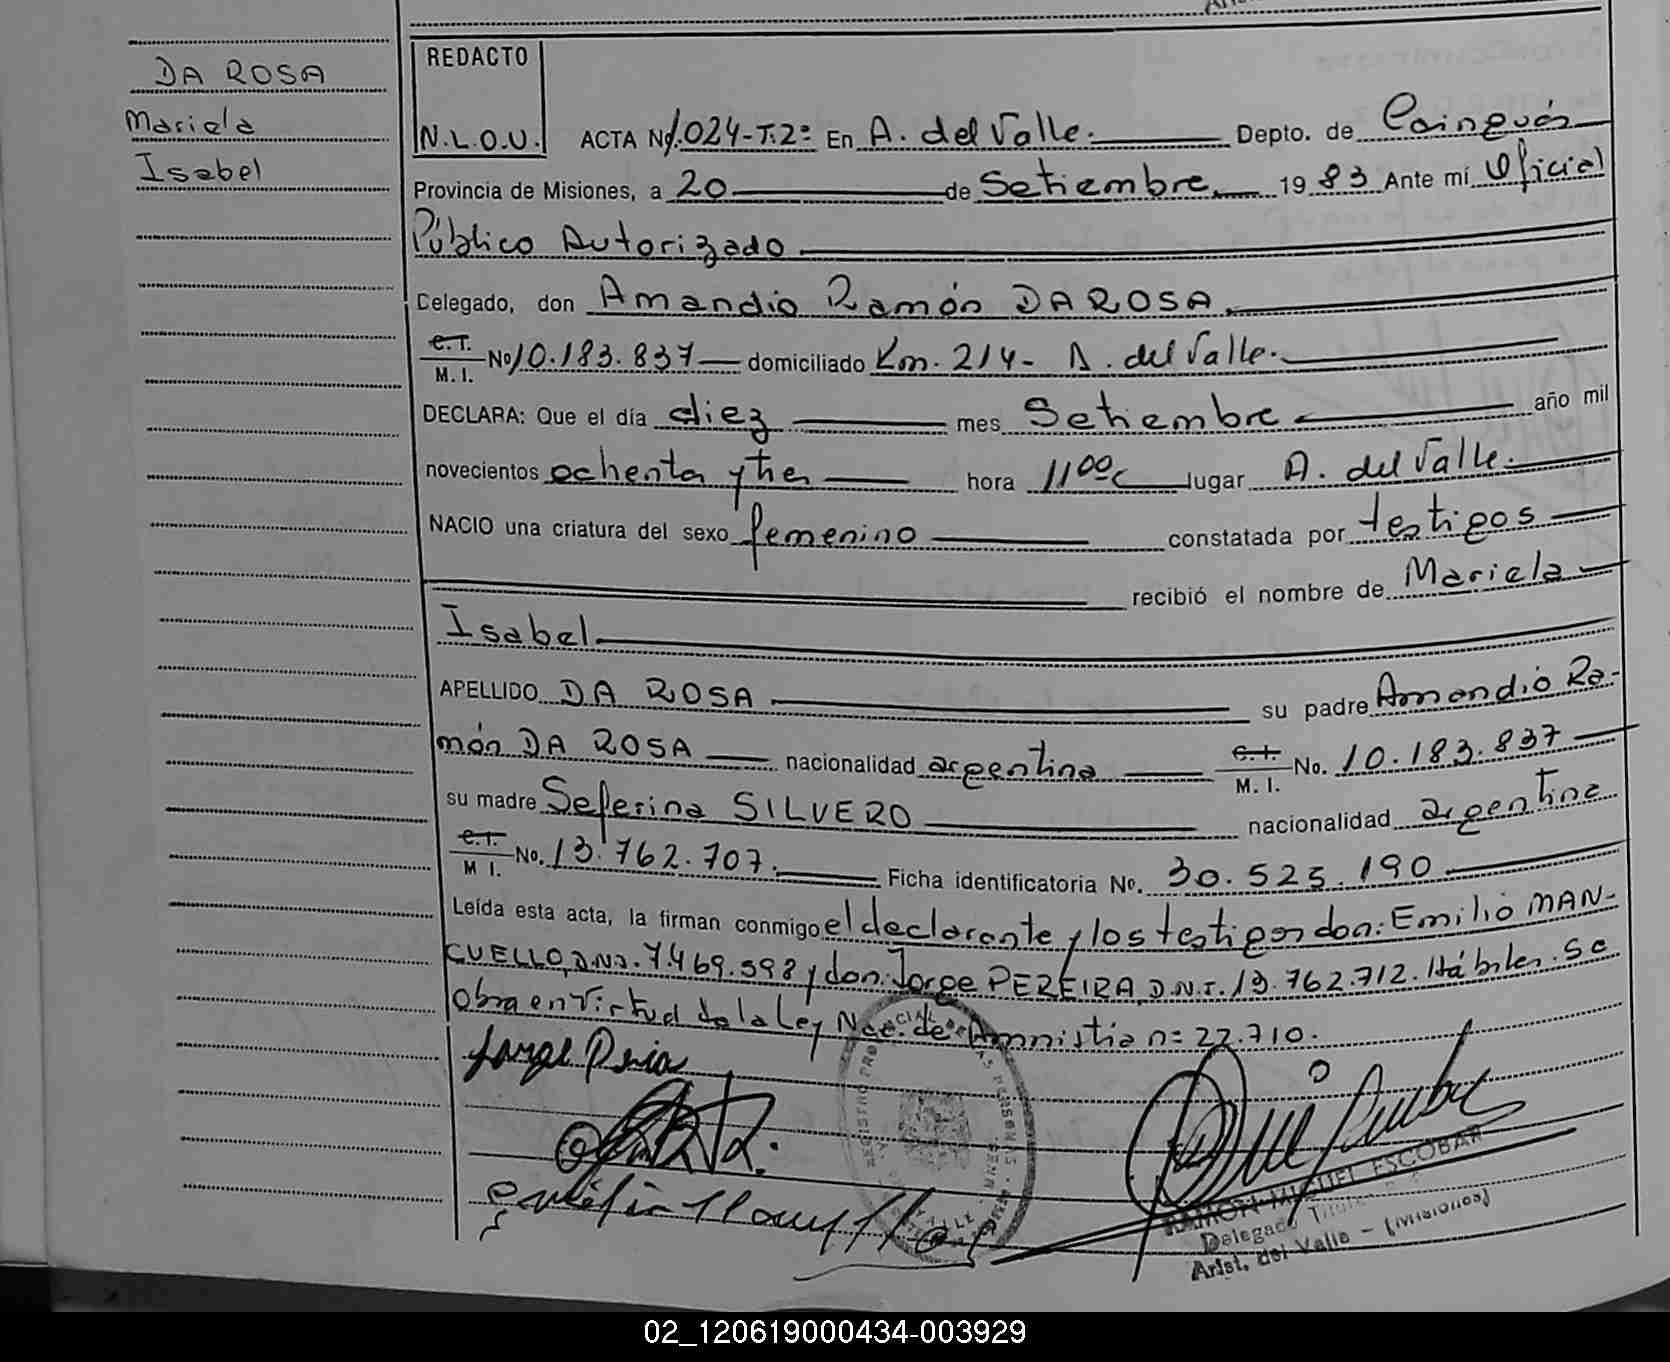 DA ROSA
Mariela
Isabel
REDACTO
N.L.O.U.
ACTA Nº 1.024-T:2º En A. del Valle. Depto. de Cainguás
Provincia de Misiones, a 20 de Setiembre 1983 Ante mí Oficial
Público Autorizado
Celegado, don Amandio Ramón DA ROSA
C.I.
M.I. Nº 10.183.837 domiciliado Km. 214- A. del Valle.
DECLARA: Que el día diez mes Setiembre año mil
novecientos ochenta y tres hora 11,00 lugar A. del Valle.
NACIO una criatura del sexo femenino constatada por testigos
recibió el nombre de Mariela
Isabel
APELLIDO DA ROSA su padre Amandio Ra-
món DA ROSA nacionalidad argentina C.I.
M.I. No. 10.183.837
su madre Seferina SILVERO nacionalidad argentina
C.I.
M I. No. 13.762.707. Ficha identificatoria No. 30.525.190
Leída esta acta, la firman conmigo el declarante y los testigos don: Emilio MAN-
CUELLO, D.N.I. 7.469.598 y don: Jorge PEREIRA D.N.I. 13.762.712. Hábiles. Se
obra en virtud de la Ley Nac. de Amnistia nº 22.710.
RAMON MIGUEL ESCOBAR
Delegado Titular
Arist. del Valle - (Misiones)
02_120619000434-003929